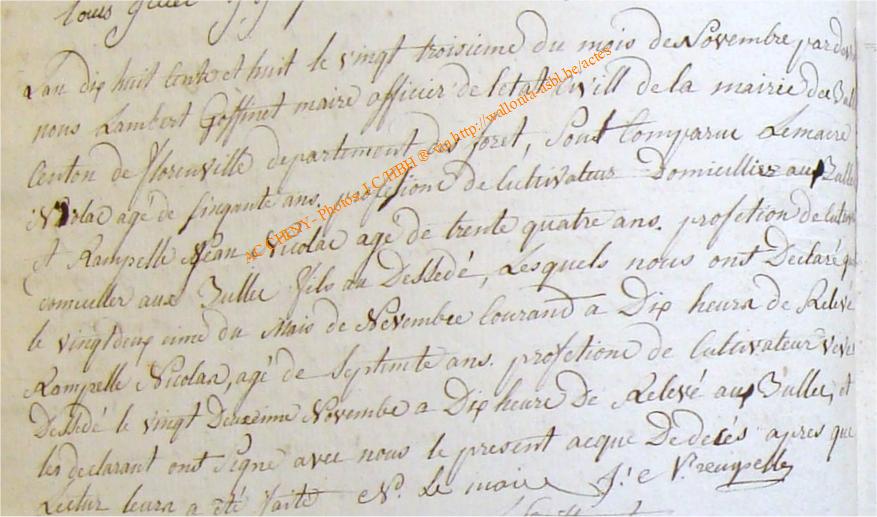 Lan dix huit Cente et huit le vingt troisieme du mois de Novembre par dev
nous Lambert Goffinet maire officier de letat Civill de la mairie des Bull
Centon de florenville departement des foret, Sont Comparue Lemaire
Nicolae agé de Sinqante ans. profesione de Cultivateur Domicullier aux Bulle
et Rampelle Jean Nicolae age de trente quatre ans. profetion de Cutiva
comiculler aux Bulle fils au Dessedé, Lesquels nous ont Declaré que
le vingt deux ieme du Mois de Novembre Courand a Dix heura de Relevé
Rampelle Nicolaa, agé de Septente ans. profetione de Cultivateur veve
Dessedé le vingt Deuxeime Novembe a Dix heure De Relevé aux Bulle, et
les declarant ont Signe avec nous le present acque De decés apres que
Lectur leura a été faite N. Le maire J: N: reumpelle
AC CHINY - Photos J.C./HBH @ vip http://wallonia-asbl.be/actes